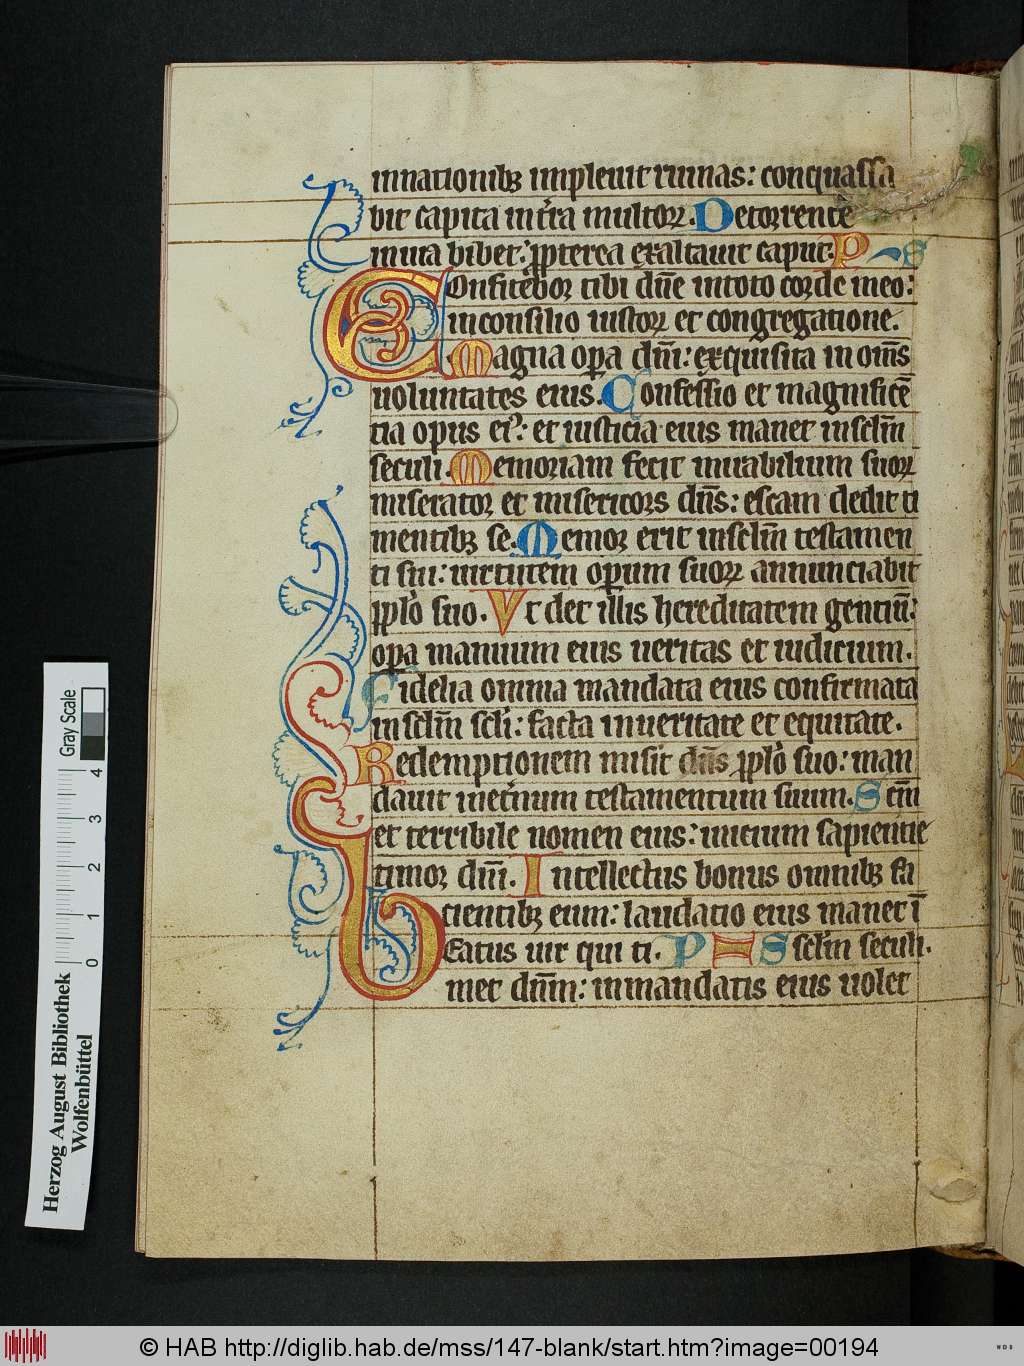 in nationibꝫ impleuit ruinas: conquassa
bit capita in tr̄ra multoꝝ. De torrente
in uia bibet: ꝓpterea exaltauit caput. P S
Confitebor tibi dn̄e in toto corde meo:
in consilio iustoꝝ et congregatione.
Magna oꝑa dn̄i: exquisita in om̄s
uoluntates eius. Confessio et magnificē
tia opus ei᷒: et iusticia eius manet in sclm̄
seculi. Memoriam fecit mirabilium suoꝝ
miserator et misericors dn̄s: escam dedit ti
mentibꝫ se. Memor erit in sclm̄ testamen
ti sui: uirtutem operum suoꝝ annunciabit
pplo suo. Vt det illis hereditatem gentiū:
oꝑa manuum eius ueritas et iudicium.
Fidelia omnia mandata eius confirmata
in sclm̄ scl̄i: facta in ueritate et equitate.
Redemptionem misit dn̄s pplo suo: man
dauit in et̄num testamentum suum. Scm̄
et terribile nomen eius: inicium sapientie
timor dn̄i. Intellectus bonus omnibꝫ fa
cientibꝫ eum: laudatio eius manet ī
Beatus uir qui ti. P S sclm̄ seculi.
met dn̄m: in mandatis eius uolet
Gray Scale
4 3 2 1 0
Herzog August Bibliothek
Wolfenbüttel
© HAB http://diglib.hab.de/mss/147-blank/start.htm?image=00194
WDB